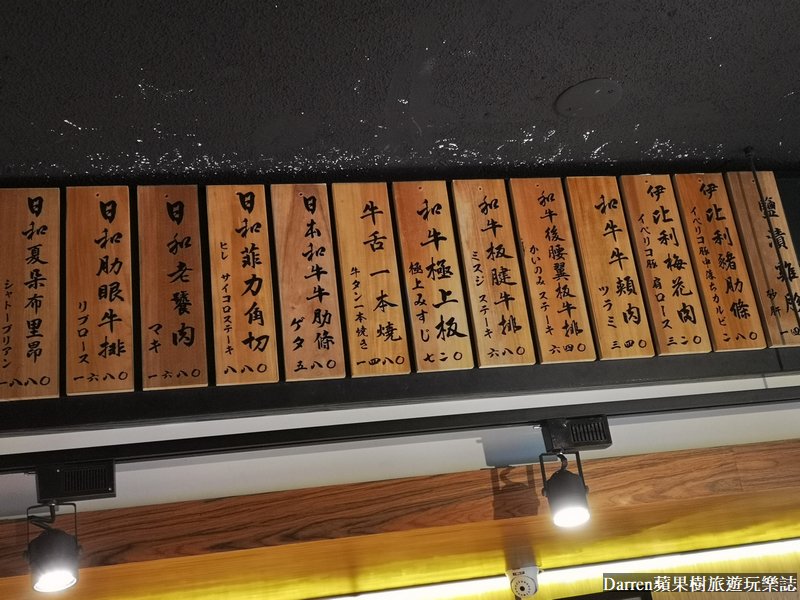 日和夏朵布里昂
シャトーブリアン
一八八〇
日和肋眼牛排
リブロース
一六八〇
日和老饕肉
マキ
一六八〇
日和菲力角切
ヒレ サイコロステーキ
八八〇
日本和牛牛肋條
ゲタ
五八〇
牛舌一本焼
牛タン一本焼き
一四八〇
和牛極上板
極上みすじ
七二〇
和牛板腱牛排
ミスジ ステーキ
六八〇
和牛後腰翼板牛排
かいのみ ステーキ
六四〇
和牛牛頰肉
ツラミ
三四〇
伊比利梅花肉
イベリコ豚 肩ロース
三二〇
伊比利豬肋條
イベリコ豚中落ちカルビ
二八〇
鹽漬雞胗
砂肝
Darren蘋果樹旅遊玩樂誌